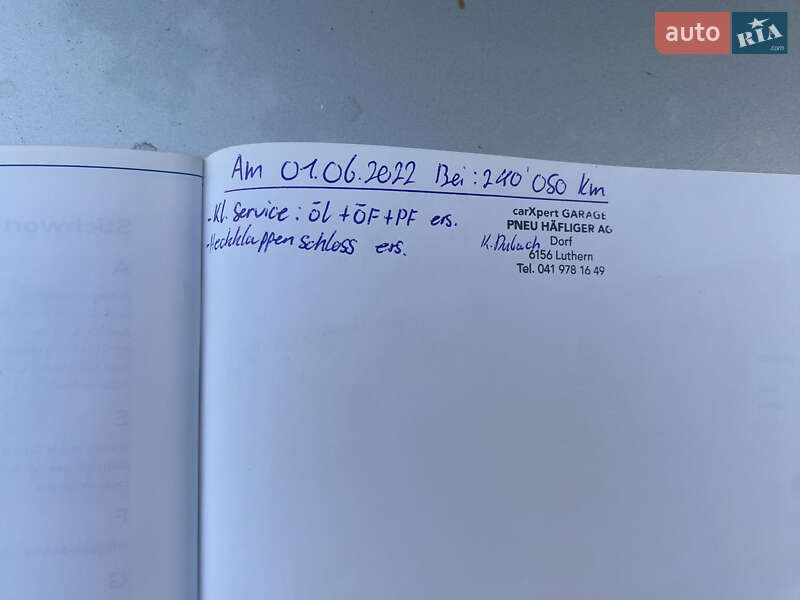 auto RIA .com
Am 01.06.2022 Bei: 240'050 Km
- Kl. Service: Öl + ÖF + PF ers.
- Heckklappenschloss ers.
carXpert GARAGE
PNEU HÄFLIGER AG
K. Dubach Dorf
6156 Luthern
Tel. 041 978 16 49
Stichwort
A
E
F
G